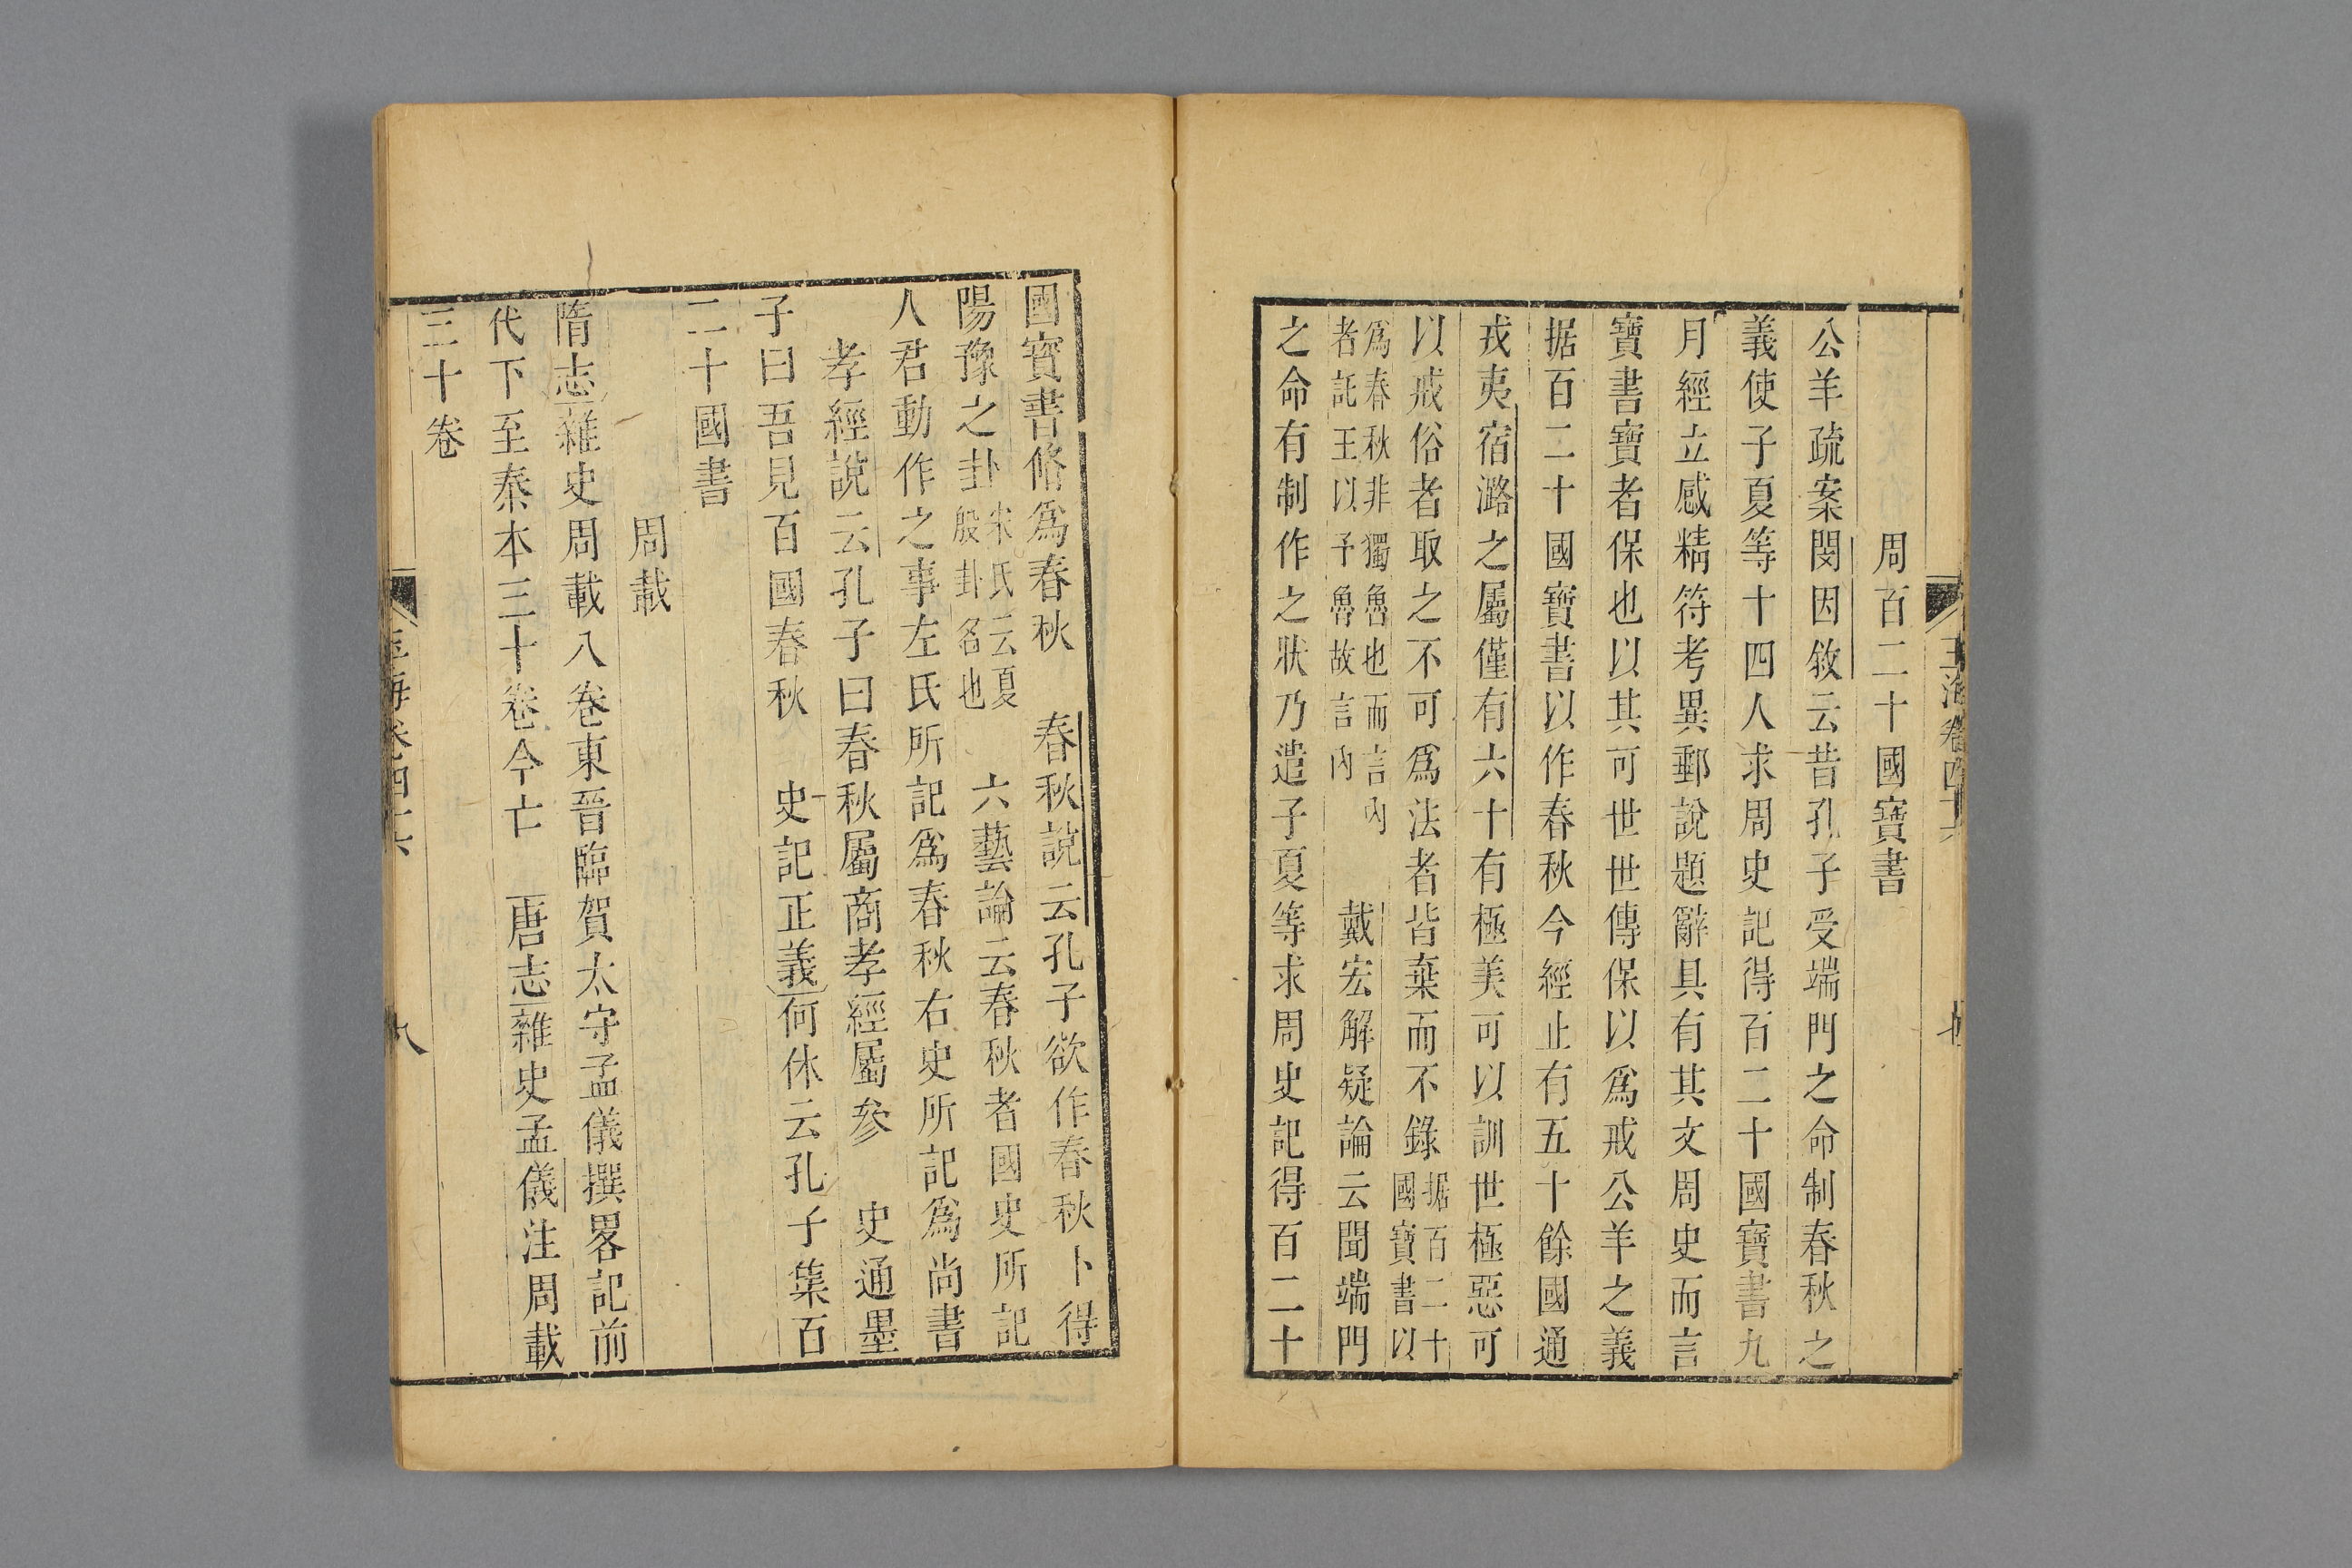 周百二十國寶書
公羊疏案閔因敘云昔孔子受端門之命制春秋之
義使子夏等十四人求周史記得百二十國寶書九
月經立感精符考異郵說題辭具有其文周史而言
寶書寶者保也以其可世世傳保以爲戒公羊之義
据百二十國寶書以作春秋今經止有五十餘國通
戎夷宿潞之屬僅有六十有極美可以訓世極惡可
以戒俗者取之不可爲法者皆棄而不錄据百二十國寶書以
爲春秋非獨魯也而言內者託王以予魯故言內 戴宏解疑論云聞端門
之命有制作之狀乃遣子夏等求周史記得百二十
國寶書脩爲春秋 春秋說云孔子欲作春秋卜得
陽豫之卦宋氏云夏殷卦名也 六藝論云春秋者國史所記
人君動作之事左氏所記爲春秋右史所記爲尚書
孝經說云孔子曰春秋屬商孝經屬參 史通墨
子曰吾見百國春秋 史記正義何休云孔子集百
二十國書
周載
隋志雜史周載八卷東晉臨賀太守孟儀撰畧記前
代下至秦本三十卷今亡 唐志雜史孟儀注周載
三十卷
玉海卷四十六
八